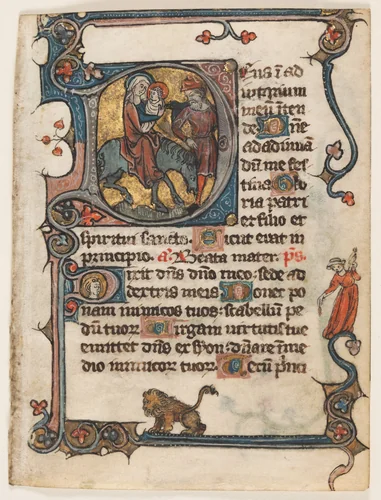 Deus ī ad
iutorium
meū īten
de Dn̄e
ad adiuuā
dū me fes
tina Glo
ria patri
et filio et
spiritui sancto. Sicut erat in
principio. a. Beata mater. p̄s.
Dixit dn̄s dn̄o meo: sede ad
dextris meis Donec po
nam inimicos tuos: scabellū pe
dū tuor Virgam uirtutis tue
emittet dn̄s ex syon: dn̄are ī me
dio inimicor tuor Tecū p̄nci